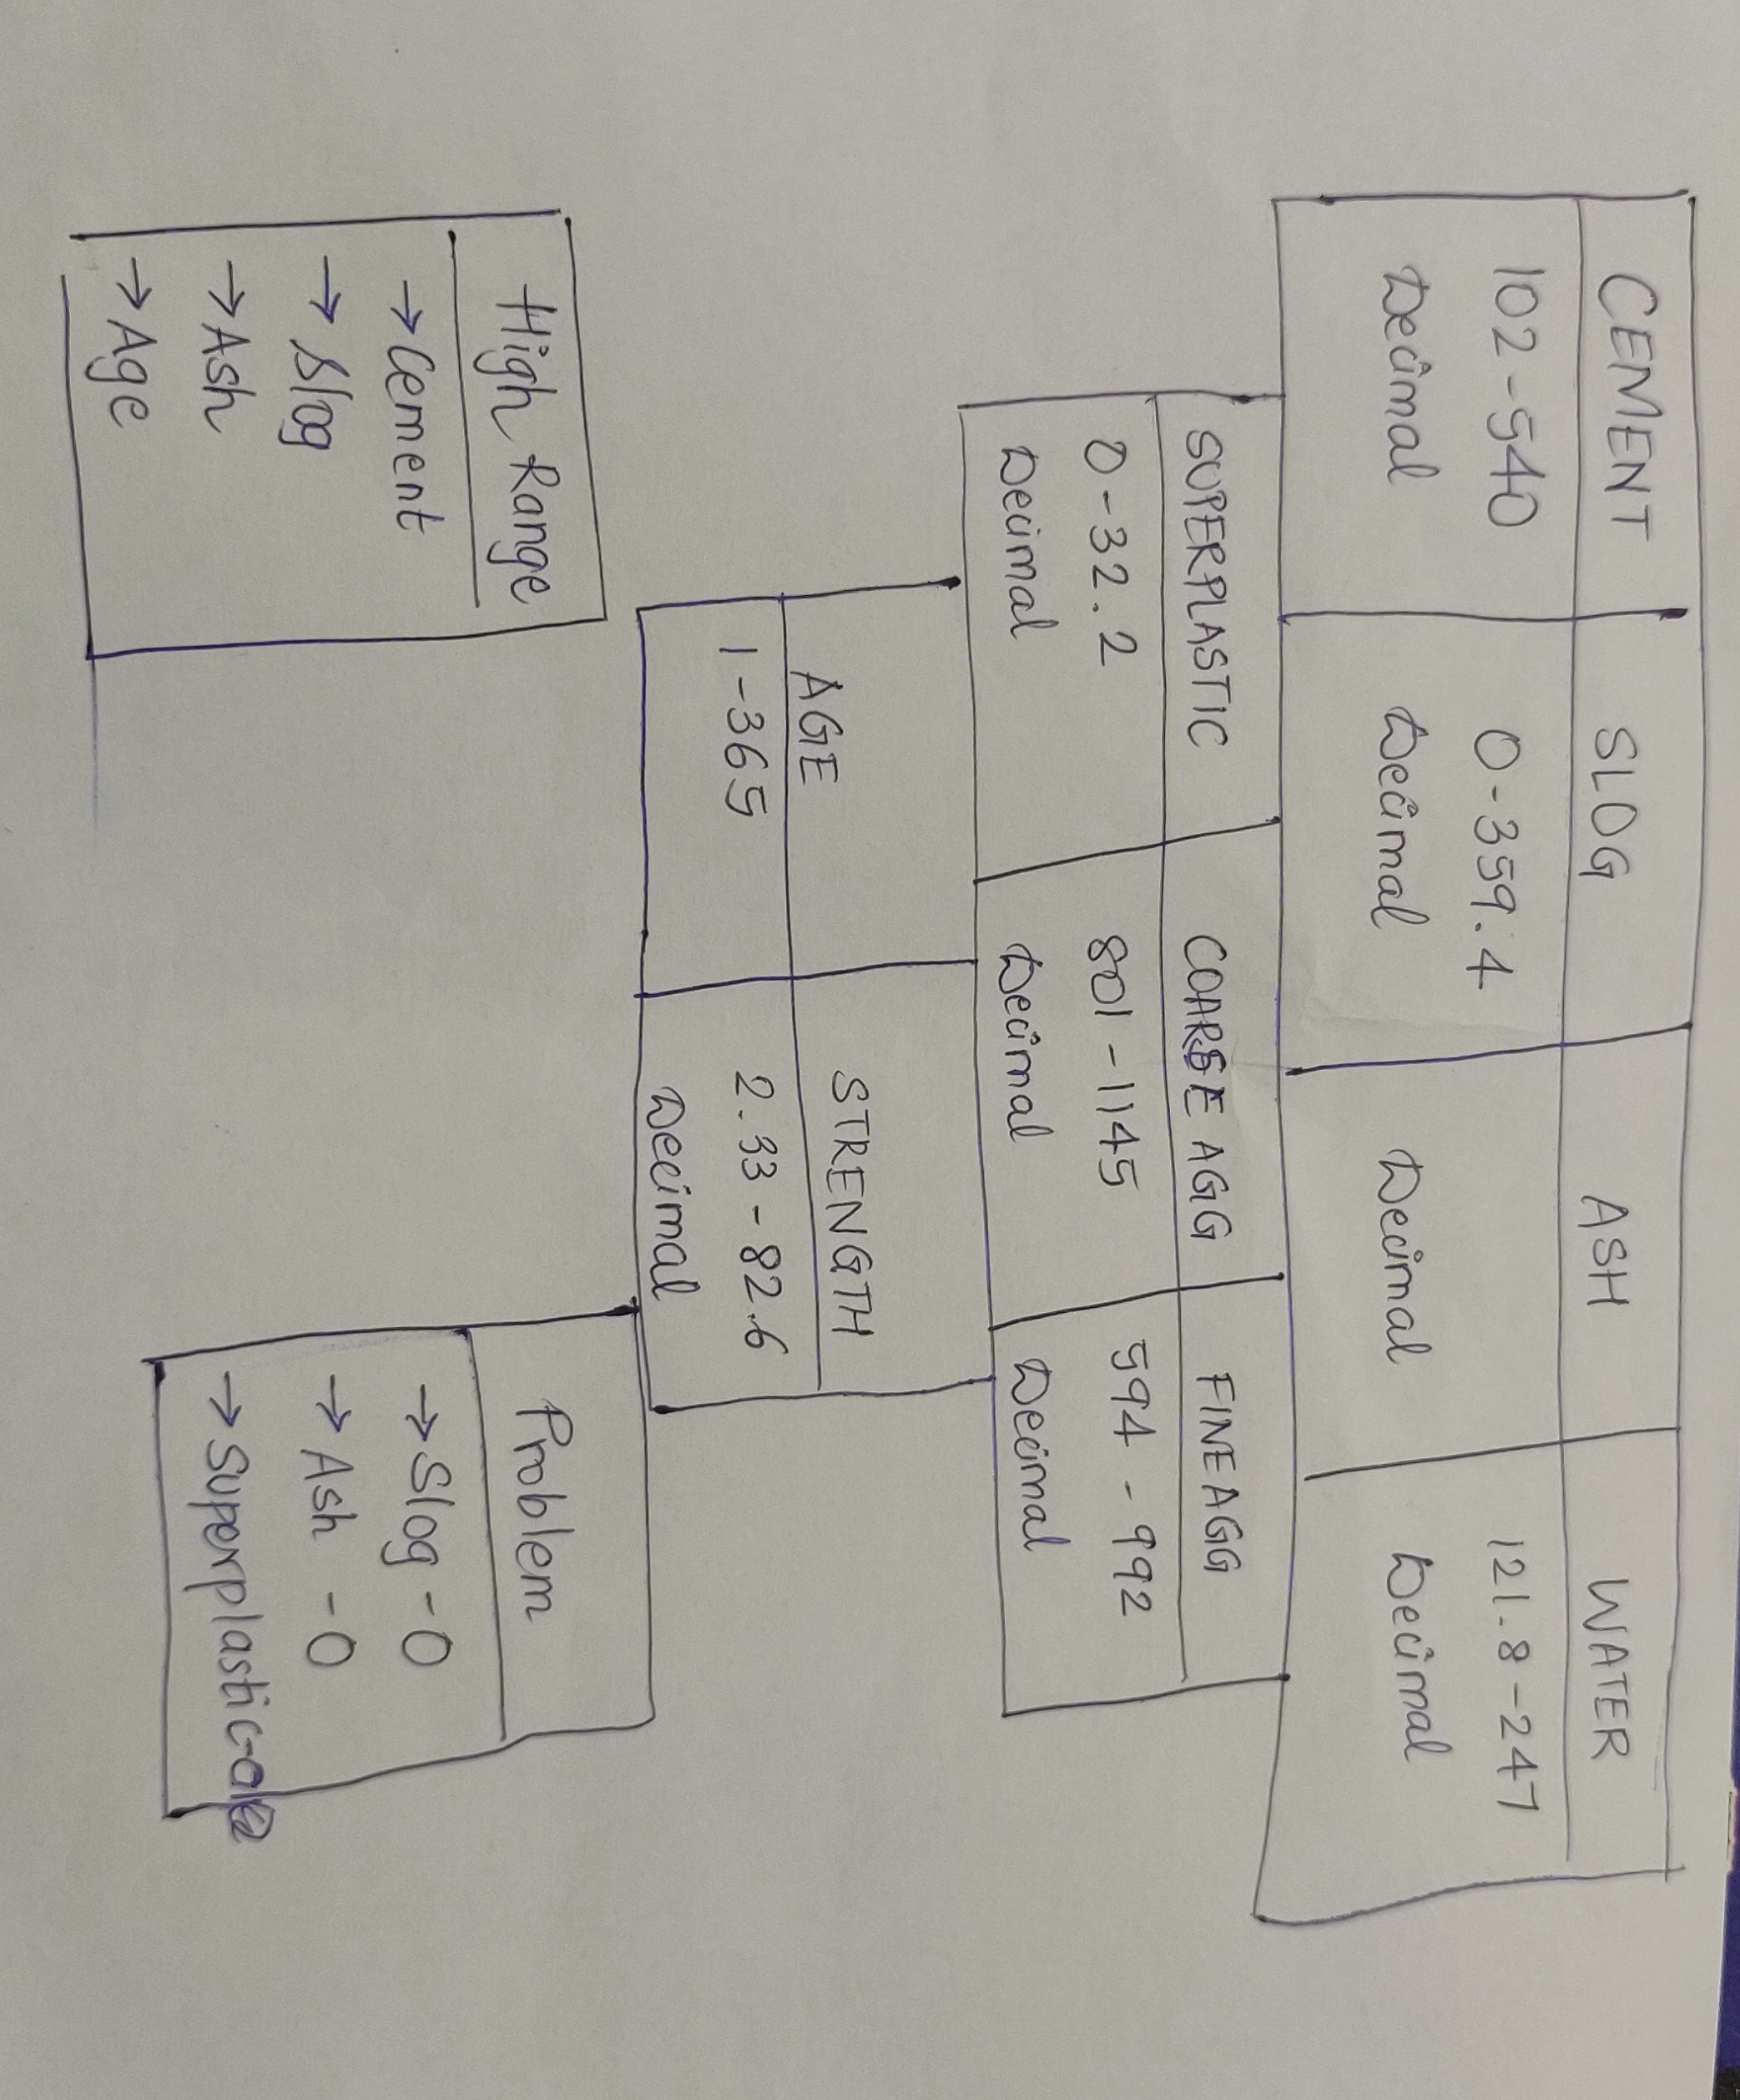 CEMENT SLOG ASH WATER
102-540 0-359.4 121.8-247
Decimal Decimal Decimal Decimal
SUPERPLASTIC COARSE AGG FINE AGG
0-32.2 801-1145 594-992
Decimal Decimal Decimal
AGE STRENGTH
1-365 2.33-82.6
Decimal
High Range
→Cement
→Slog
→Ash
→Age
Problem
→Slog-0
→Ash -0
→Superplastic-